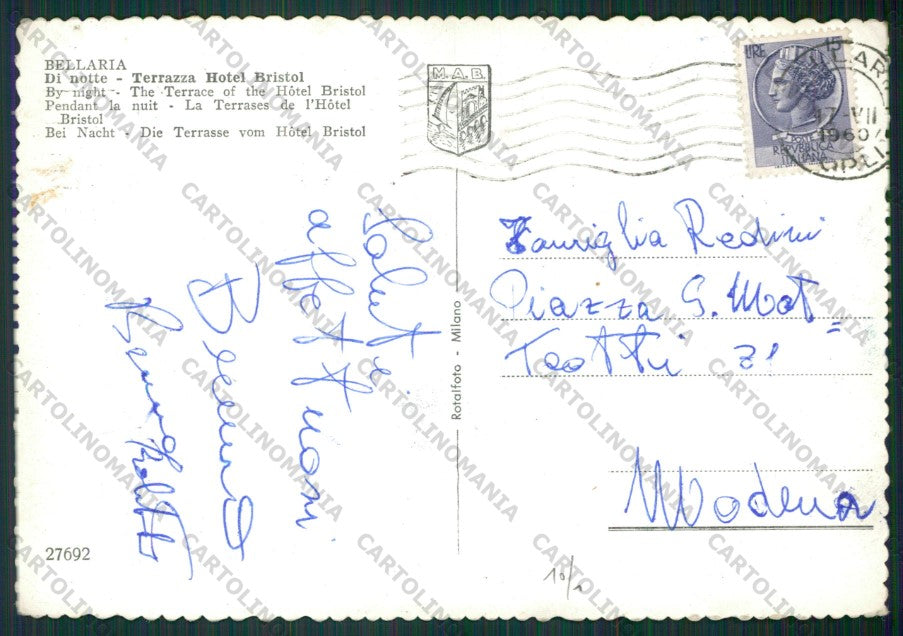 BELLARIA
Di notte - Terrazza Hotel Bristol
By night - The Terrace of the Hôtel Bristol
Pendant la nuit - La Terrases de l'Hôtel
Bristol
Bei Nacht - Die Terrasse vom Hôtel Bristol
M.A.B.
LIRE 15
POSTE
REPVBBLICA
ITALIANA
VII
1960
Saluti
affettuosi
Famiglia Redini
Piazza G. Mat=
teotti 21
Modena
Rotalfoto - Milano
27692
CARTOLINOMANIA